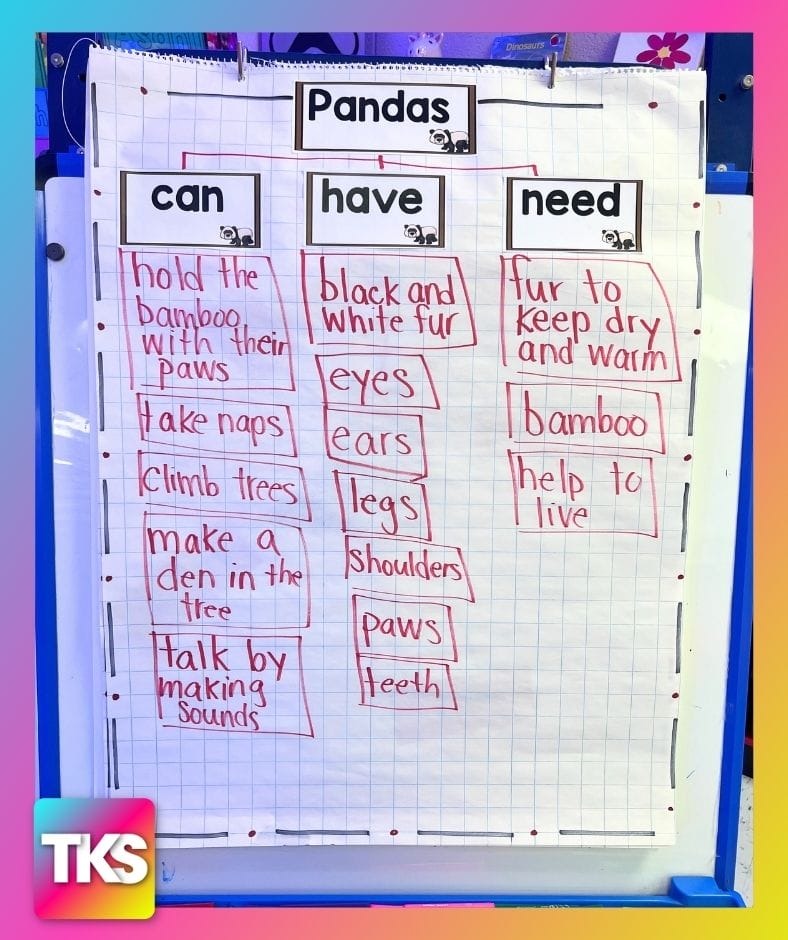 Dinosaurs
Pandas
can
hold the
bamboo
with their
paws
take naps
climb trees
make a
den in the
tree
talk by
making
sounds
have
black and
white fur
eyes
ears
legs
shoulders
paws
teeth
need
fur to
keep dry
and warm
bamboo
help to
live
TKS